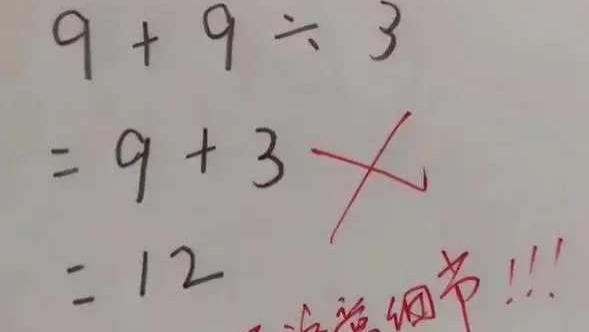 9 + 9 ÷ 3
= 9 + 3
= 12
注意细节!!!